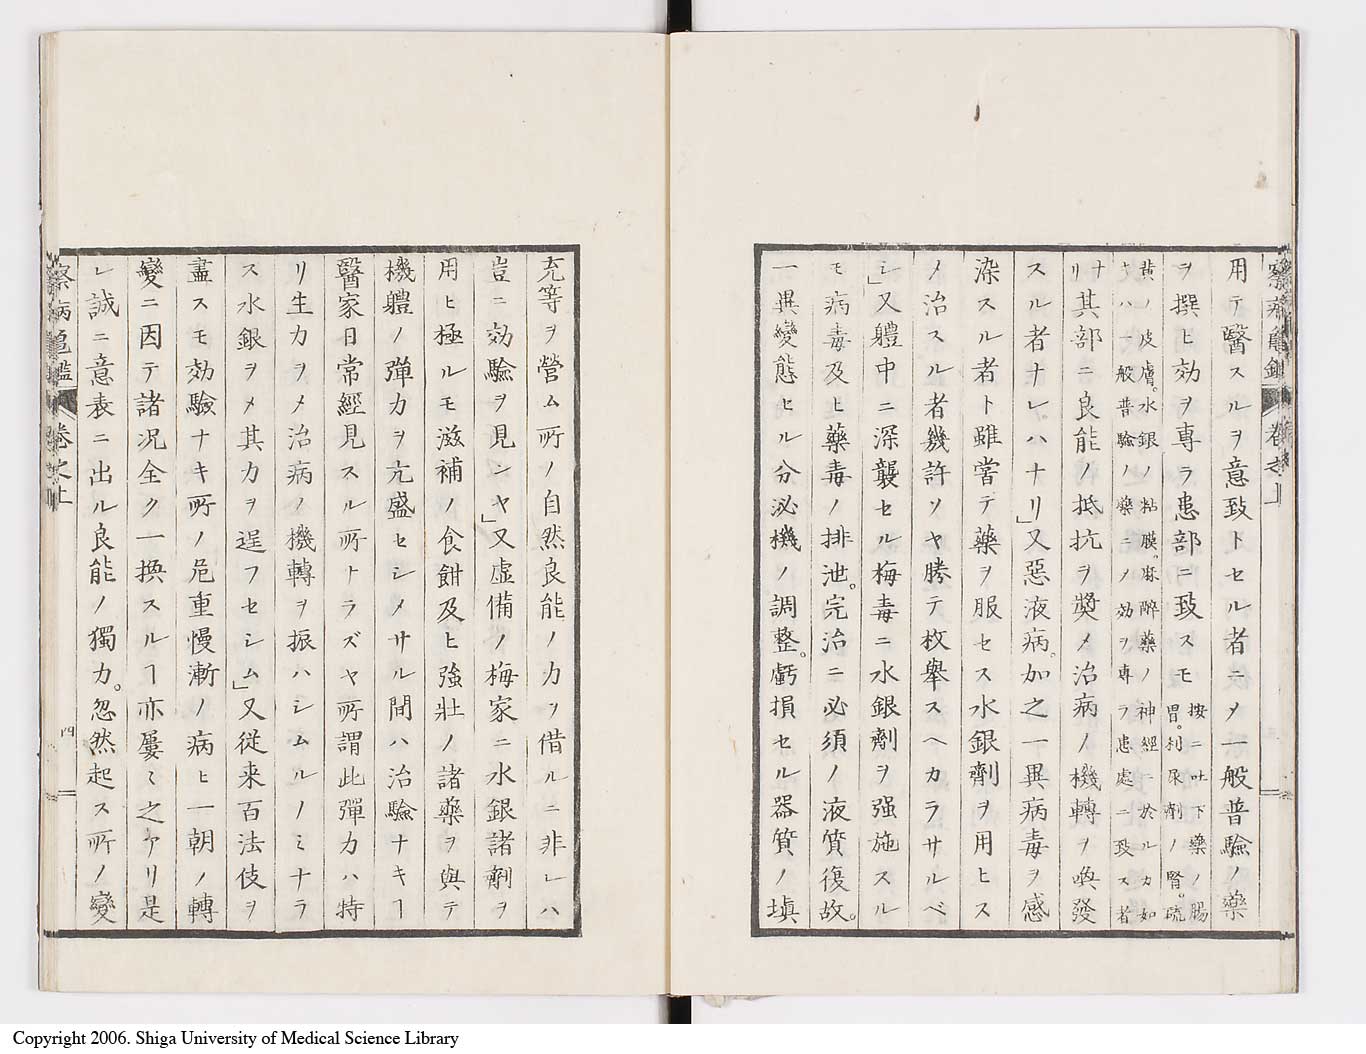 用テ醫スルヲ意致トセル者ニメ一般普驗ノ藥
ヲ撰ヒ効ヲ專ラ患部ニ致スモ
按ニ吐下藥ノ腸
胃。利尿劑ノ腎。硫
黄ノ皮膚。水銀ノ粘膜。麻醉藥ノ神經ニ於ルカ如
キハ一般普驗ノ藥ニノ効ヲ專ラ患處ニ致ス者
ナ
リ
其部ニ良能ノ抵抗ヲ奬メ治病ノ機轉ヲ喚發
スル者ナレハナリ」又惡液病。加之一異病毒ヲ感
染スル者ト雖當テ藥ヲ服セス水銀劑ヲ用ヒス
メ治スル者幾許ソヤ勝テ枚舉スヘカラサルベ
シ」又軆中ニ深襲セル梅毒ニ水銀劑ヲ强施スル
モ病毒及ヒ藥毒ノ排泄。完治ニ必須ノ液質復故。
一異變態セル分泌機ノ調整。虧損セル器質ノ塡
充等ヲ營ム所ノ自然良能ノ力ヲ借ルニ非レハ
豈ニ効驗ヲ見ンヤ」又虛備ノ梅家ニ水銀諸劑ヲ
用ヒ極ルモ滋補ノ食餌及ヒ強壯ノ諸藥ヲ與テ
機軆ノ彈力ヲ亢盛セシメサル間ハ治驗ナキヿ
醫家日常經見スル所トラズヤ所謂此彈力ハ特
リ生力ヲメ治病ノ機轉ヲ振ハシムルノミナラ
ス水銀ヲメ其力ヲ逞フセシム」又從来百法伎ヲ
盡スモ効驗ナキ所ノ危重慢漸ノ病ヒ一朝ノ轉
變ニ因テ諸況全ク一換スルヿ亦屢〻之アリ是
レ誠ニ意表ニ出ル良能ノ獨力。忽然起ス所ノ變
察病龜鑑 卷之上
四